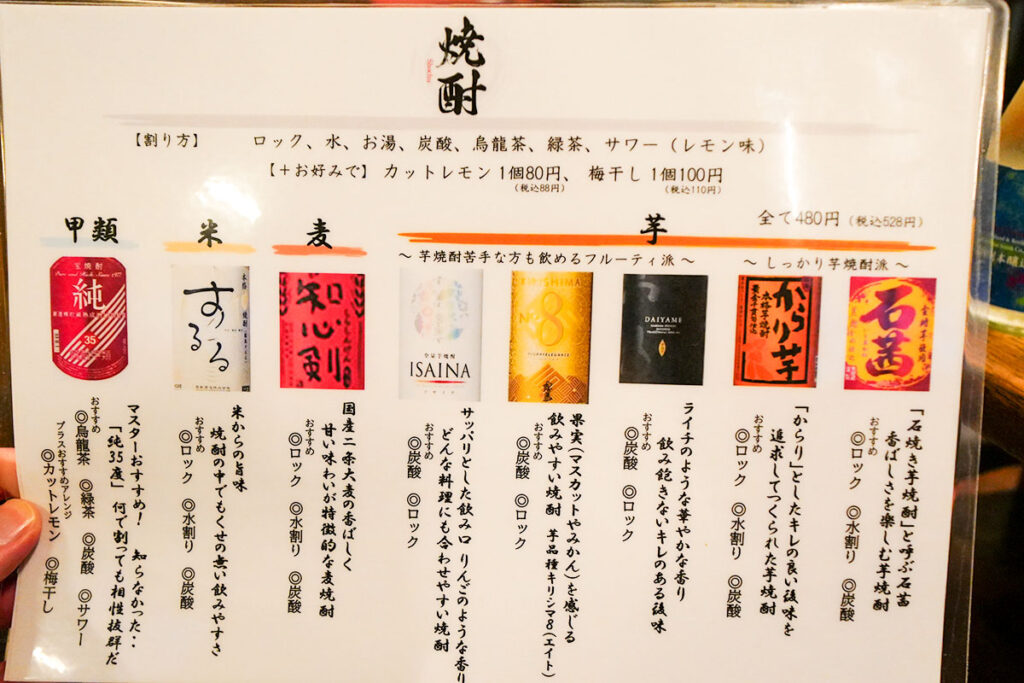 焼酎
Shochu
【割り方】 ロック、水、お湯、炭酸、烏龍茶、緑茶、サワー（レモン味）
【＋お好みで】 カットレモン 1個80円、 梅干し 1個100円
（税込88円） （税込110円）
全て480円（税込528円）
甲類
米
麦
芋
〜 芋焼酎苦手な方も飲めるフルーティ派 〜
〜 しっかり芋焼酎派 〜
宝焼酎
純
35
する
る
知心剣
ISAINA
KIRISHIMA
No.8
DAIYAME
本格芋焼酎
からり芋
石茜
「石焼き芋焼酎」と呼ぶ石茜
香ばしさを楽しむ芋焼酎
おすすめ
◎ロック ◎水割り ◎炭酸
「からり」としたキレの良い後味を
追求してつくられた芋焼酎
おすすめ
◎ロック ◎水割り ◎炭酸
ライチのような華やかな香り
飲み飽きないキレのある後味
おすすめ
◎炭酸 ◎ロック
果実（マスカットやみかん）を感じる
飲みやすい焼酎 芋品種キリシマ8（エイト）
おすすめ
◎炭酸 ◎ロック
サッパリとした飲み口 りんごのような香り
どんな料理にも合わせやすい焼酎
おすすめ
◎炭酸 ◎ロック
国産二条大麦の香ばしく
甘い味わいが特徴的な麦焼酎
おすすめ
◎ロック ◎水割り ◎炭酸
米からの旨味
焼酎の中でもくせの無い飲みやすさ
おすすめ
◎ロック ◎水割り ◎炭酸
マスターおすすめ！ 知らなかった‥
「純35度」 何で割っても相性抜群だ
おすすめ
◎烏龍茶 ◎緑茶 ◎炭酸 ◎サワー
プラスおすすめアレンジ
◎カットレモン ◎梅干し